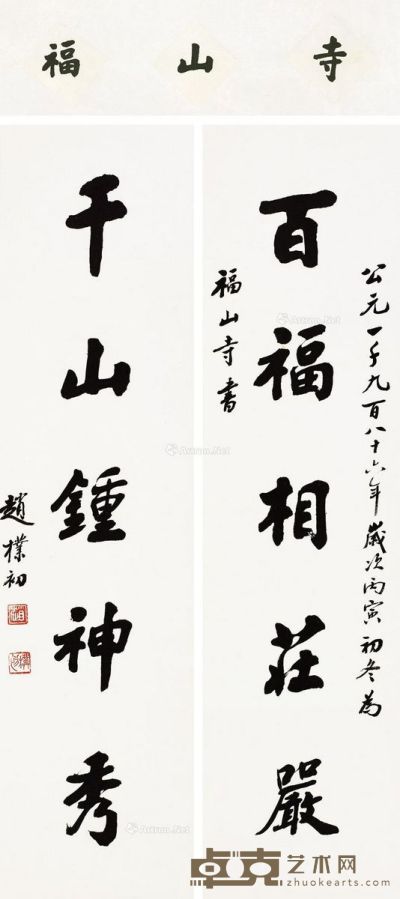 福山寺
公元一千九百八十六年歲次丙寅初冬為
百福相莊嚴
福山寺書
千山鍾神秀
趙樸初
卓克艺术网
zhuokearts.com